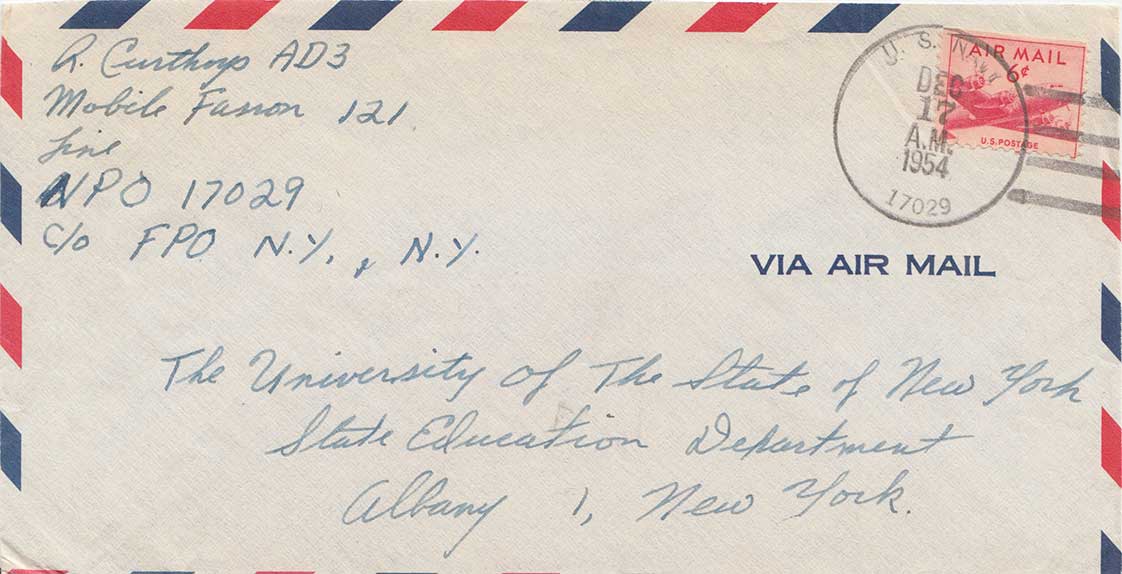 A. Curthoys AD3
Mobile Fasron 121
Line
NPO 17029
c/o FPO N.Y., N.Y.
U.S. NAVY
DEC
17
A.M.
1954
17029
AIR MAIL
6¢
U.S. POSTAGE
VIA AIR MAIL
The University of The State of New York
State Education Department
Albany 1, New York.